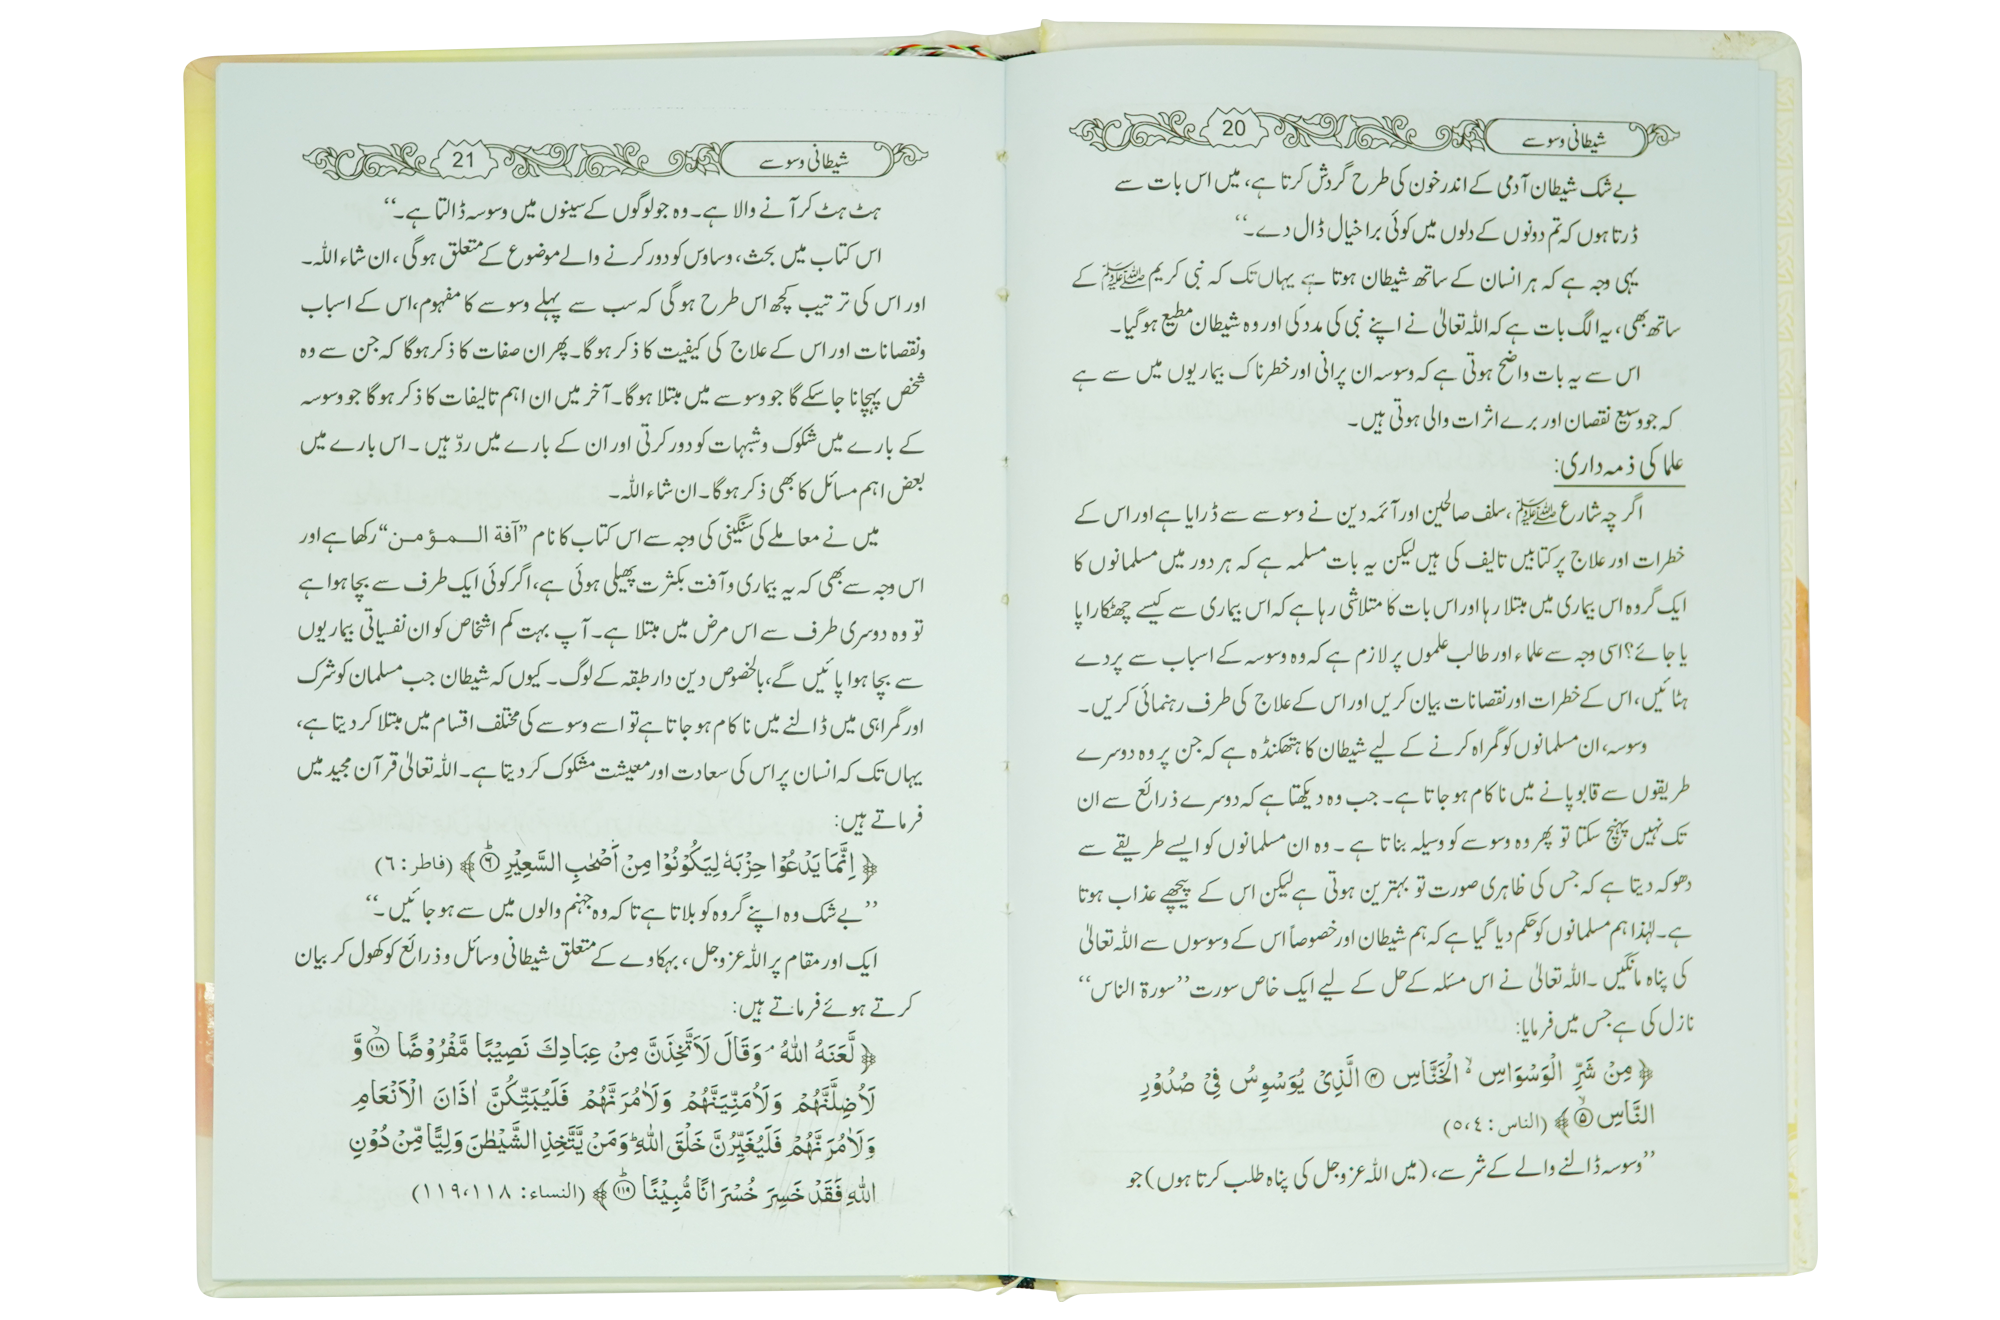 شیطانی وسوسے
20
بے شک شیطان آدمی کے اندر خون کی طرح گردش کرتا ہے، میں اس بات سے
ڈرتا ہوں کہ تم دونوں کے دلوں میں کوئی برا خیال ڈال دے۔‘‘
یہی وجہ ہے کہ ہر انسان کے ساتھ شیطان ہوتا ہے یہاں تک کہ نبی کریم ﷺ کے
ساتھ بھی، یہ الگ بات ہے کہ اللہ تعالیٰ نے اپنے نبی کی مدد کی اور وہ شیطان مطیع ہو گیا۔
اس سے یہ بات واضح ہوتی ہے کہ وسوسہ ان پرانی اور خطرناک بیماریوں میں سے ہے
کہ جو وسیع نقصان اور برے اثرات والی ہوتی ہیں۔
علما کی ذمہ داری:
اگرچہ شارع ﷺ، سلف صالحین اور آئمہ دین نے وسوسے سے ڈرایا ہے اور اس کے
خطرات اور علاج پر کتابیں تالیف کی ہیں لیکن یہ بات مسلمہ ہے کہ ہر دور میں مسلمانوں کا
ایک گروہ اس بیماری میں مبتلا رہا اور اس بات کا متلاشی رہا ہے کہ اس بیماری سے کیسے چھٹکارا پا
یا جائے؟ اسی وجہ سے علماء اور طالب علموں پر لازم ہے کہ وہ وسوسہ کے اسباب سے پردے
ہٹائیں، اس کے خطرات اور نقصانات بیان کریں اور اس کے علاج کی طرف رہنمائی کریں۔
وسوسہ، ان مسلمانوں کو گمراہ کرنے کے لیے شیطان کا ہتھکنڈہ ہے کہ جن پر وہ دوسرے
طریقوں سے قابو پانے میں ناکام ہو جاتا ہے۔ جب وہ دیکھتا ہے کہ دوسرے ذرائع سے ان
تک نہیں پہنچ سکتا تو پھر وہ وسوسے کو وسیلہ بناتا ہے۔ وہ ان مسلمانوں کو ایسے طریقے سے
دھوکہ دیتا ہے کہ جس کی ظاہری صورت تو بہترین ہوتی ہے لیکن اس کے پیچھے عذاب ہوتا
ہے۔ لہٰذا ہم مسلمانوں کو حکم دیا گیا ہے کہ ہم شیطان اور خصوصاً اس کے وسوسوں سے اللہ تعالیٰ
کی پناہ مانگیں۔ اللہ تعالیٰ نے اس مسئلہ کے حل کے لیے ایک خاص سورت ’’سورۃ الناس‘‘
نازل کی ہے جس میں فرمایا:
﴿مِنْ شَرِّ الْوَسْوَاسِ ۙ الْخَنَّاسِ ۴ الَّذِیْ یُوَسْوِسُ فِیْ صُدُوْرِ
النَّاسِ ۙ۵﴾ (الناس: ٤،٥)
’’وسوسہ ڈالنے والے کے شر سے، (میں اللہ عزوجل کی پناہ طلب کرتا ہوں) جو
شیطانی وسوسے
21
ہٹ ہٹ کر آنے والا ہے۔ وہ جو لوگوں کے سینوں میں وسوسہ ڈالتا ہے۔‘‘
اس کتاب میں بحث، وساوس کو دور کرنے والے موضوع کے متعلق ہوگی، ان شاء اللہ۔
اور اس کی ترتیب کچھ اس طرح ہوگی کہ سب سے پہلے وسوسے کا مفہوم، اس کے اسباب
ونقصانات اور اس کے علاج کی کیفیت کا ذکر ہوگا۔ پھر ان صفات کا ذکر ہوگا کہ جن سے وہ
شخص پہچانا جا سکے گا جو وسوسے میں مبتلا ہوگا۔ آخر میں ان اہم تالیفات کا ذکر ہوگا جو وسوسہ
کے بارے میں شکوک و شبہات کو دور کرتی اور ان کے بارے میں ردّ ہیں۔ اس بارے میں
بعض اہم مسائل کا بھی ذکر ہوگا۔ ان شاء اللہ۔
میں نے معاملے کی سنگینی کی وجہ سے اس کتاب کا نام ”آفة المؤمن“ رکھا ہے اور
اس وجہ سے بھی کہ یہ بیماری و آفت بکثرت پھیلی ہوئی ہے، اگر کوئی ایک طرف سے بچا ہوا ہے
تو وہ دوسری طرف سے اس مرض میں مبتلا ہے۔ آپ بہت کم اشخاص کو ان نفسیاتی بیماریوں
سے بچا ہوا پائیں گے، بالخصوص دین دار طبقہ کے لوگ۔ کیوں کہ شیطان جب مسلمان کو شرک
اور گمراہی میں ڈالنے میں ناکام ہو جاتا ہے تو اسے وسوسے کی مختلف اقسام میں مبتلا کر دیتا ہے،
یہاں تک کہ انسان پر اس کی سعادت اور معیشت مشکوک کر دیتا ہے۔ اللہ تعالیٰ قرآن مجید میں
فرماتے ہیں:
﴿اِنَّمَا یَدْعُوْا حِزْبَهٗ لِیَکُوْنُوْا مِنْ اَصْحٰبِ السَّعِیْرِ ؕ۶﴾ (فاطر: ٦)
’’بے شک وہ اپنے گروہ کو بلاتا ہے تاکہ وہ جہنم والوں میں سے ہو جائیں۔‘‘
ایک اور مقام پر اللہ عزوجل، بہکاوے کے متعلق شیطانی وسائل و ذرائع کو کھول کر بیان
کرتے ہوئے فرماتے ہیں:
﴿لَّعَنَهُ اللّٰهُ ۘ وَقَالَ لَاَتَّخِذَنَّ مِنْ عِبَادِكَ نَصِیْبًا مَّفْرُوْضًا ۙ۱۱۸ وَّ
لَاُضِلَّنَّهُمْ وَلَاُمَنِّیَنَّهُمْ وَلَاٰمُرَنَّهُمْ فَلَیُبَتِّکُنَّ اٰذَانَ الْاَنْعَامِ
وَلَاٰمُرَنَّهُمْ فَلَیُغَیِّرُنَّ خَلْقَ اللّٰهِ ؕ وَمَنْ یَّتَّخِذِ الشَّیْطٰنَ وَلِیًّا مِّنْ دُوْنِ
اللّٰهِ فَقَدْ خَسِرَ خُسْرَانًا مُّبِیْنًا ؕ۱۱۹﴾ (النساء: ١١٩،١١٨)